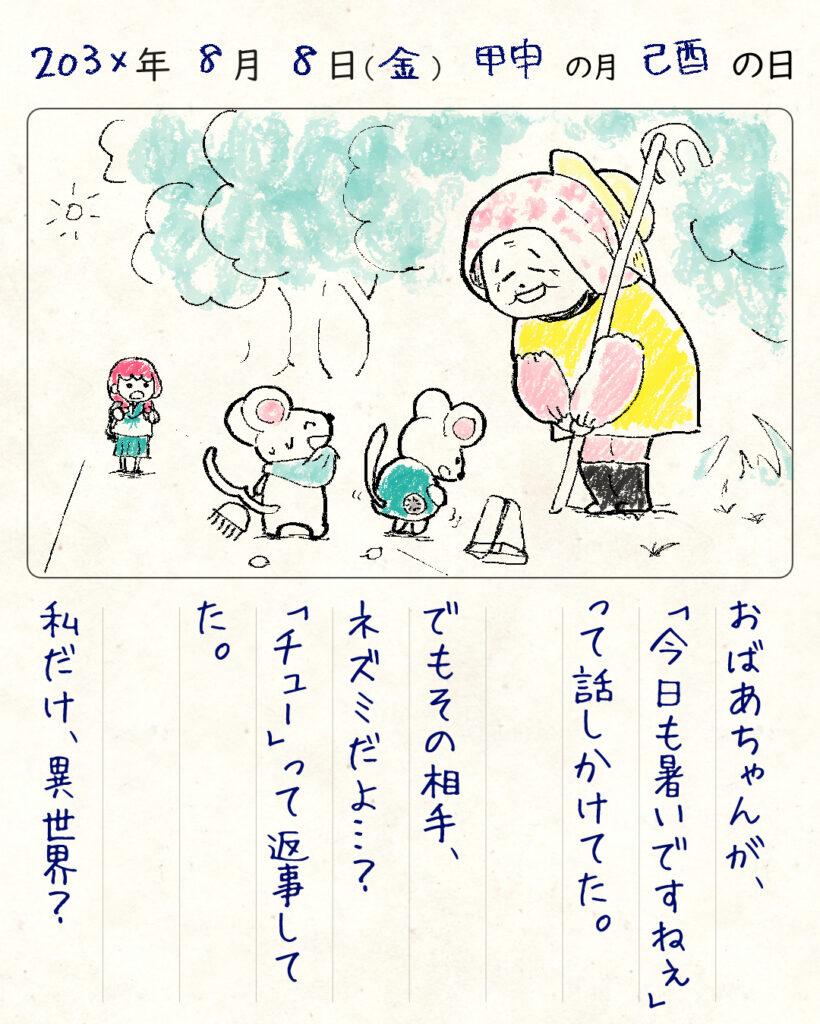 203x年 8月 8日(金) 甲申の月 己酉の日
おばあちゃんが、
「今日も暑いですねぇ」
って話しかけてた。
でもその相手、
ネズミだよ…?
「チュー」って返事して
た。
私だけ、異世界?